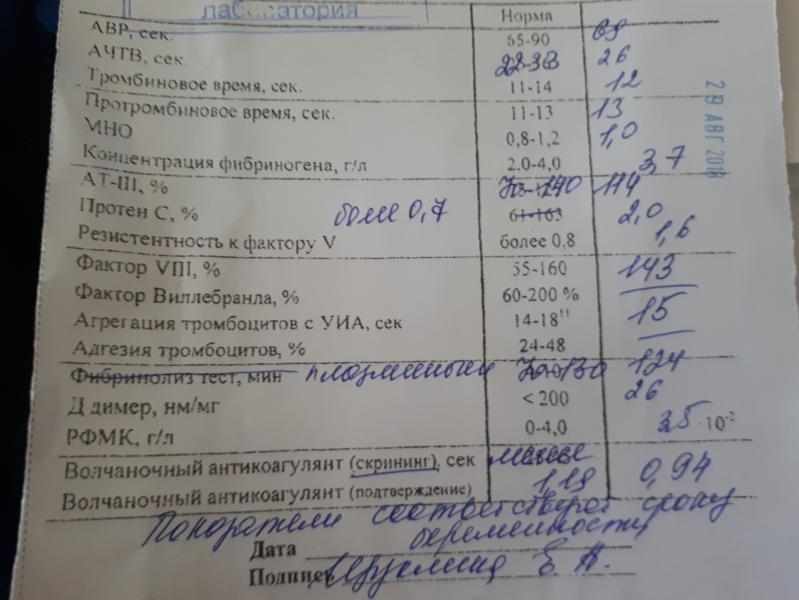 лаборатория
Норма
АВР, сек. 65-90 69
АЧТВ, сек. 22-33 26
Тромбиновое время, сек. 11-14 12
29 АВГ 2018
Протромбиновое время, сек. 11-13 13
МНО 0,8-1,2 1,0
Концентрация фибриногена, г/л 2.0-4,0 3,7
АТ-III, % 70-140 114
Протен С, % более 0,7 61-163 2,0
Резистентность к фактору V более 0,8 1,6
Фактор VIII, % 55-160 143
Фактор Виллебранла, % 60-200 %
Агрегация тромбоцитов с УИА, сек 14-18'' 15
Адгезия тромбоцитов, % 24-48
Фибринолиз тест, мин плазминоген 70-130 124
Д димер, нм/мг < 200 26
РФМК, г/л 0-4,0 3,5 ·10⁻²
Волчаночный антикоагулянт (скрининг), сек менее
Волчаночный антикоагулянт (подтверждение) 1,19 0,94
Показатели соответствуют сроку
беременности
Дата
Подпись Е. А.